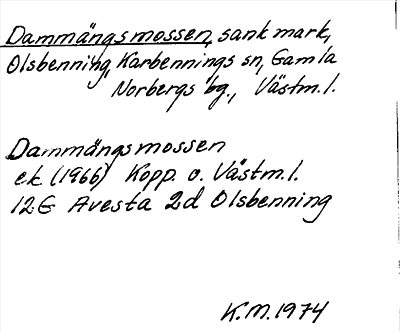 Dammängsmossen, sank mark,
Olsbenning, Karbennings sn, Gamla
Norbergs bg., Västm.l.
Dammängsmossen
ek (1966) Kopp. o. Västm.l.
12G Avesta 2d Olsbenning
K.M. 1974